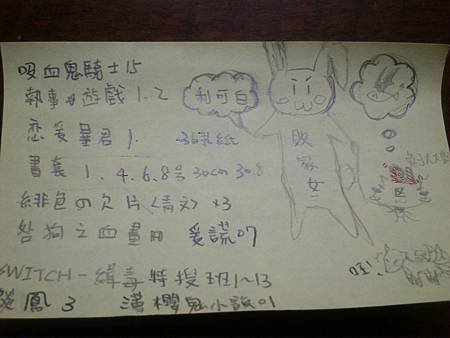 吸血鬼騎士15
執事の遊戲 1.2
利可白
戀愛暴君 1.
敗家女
書套 1. 4. 6. 8号 30cm 30.8
緋色の欠片〈青文〉×3
咎狗之血畫冊 愛謊07
SWITCH-緝毒特搜班1~13
鳳 3 薄櫻鬼小說01